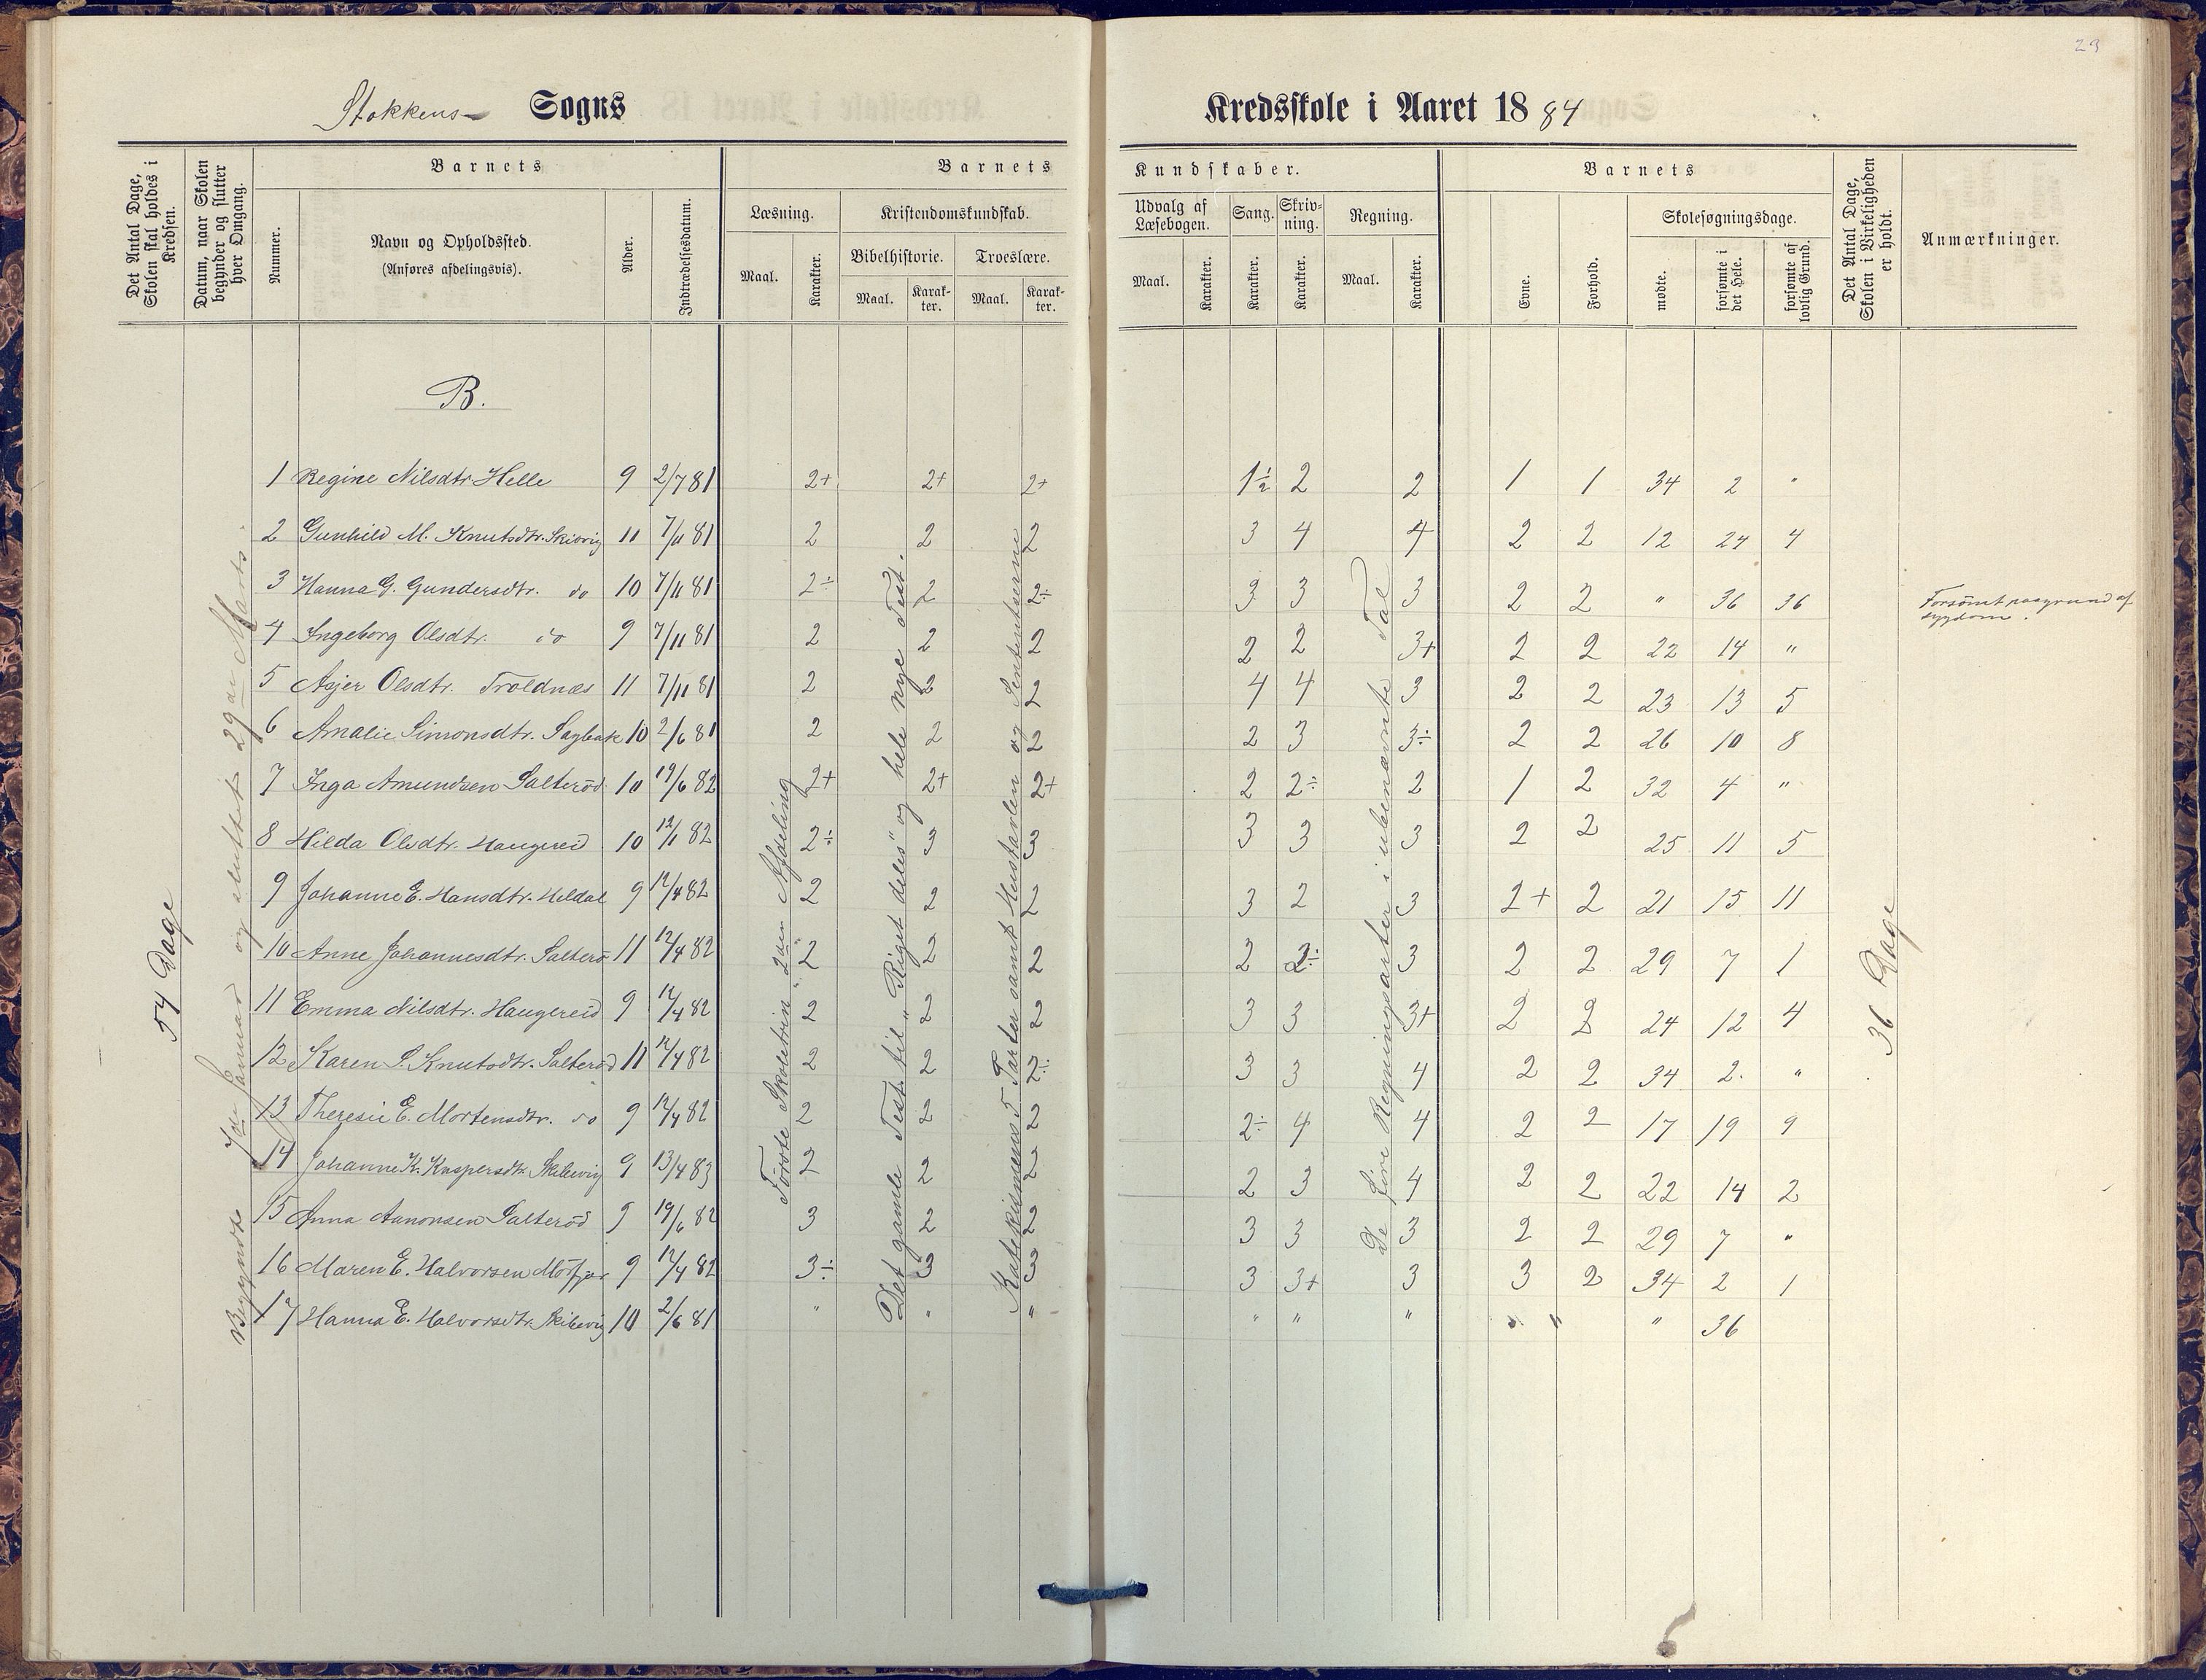 23
Stokkens Sogns Kredsskole i Aaret 1884
Det Antal Dage, Skolen skal holdes i Kredsen.
Datum, naar Skolen begynder og slutter hver Omgang.
Barnets
Nummer.
Navn og Opholdssted.
(Anføres afdelingsvis).
Alder.
Indtrædelsesdatum.
Barnets Kundskaber.
Læsning.
Maal.
Karakter.
Kristendomskundskab.
Bibelhistorie.
Maal.
Karakter.
Troeslære.
Maal.
Karakter.
Udvalg af Læsebogen.
Maal.
Karakter.
Sang.
Karakter.
Skrivning.
Karakter.
Regning.
Maal.
Karakter.
Barnets
Evne.
Forhold.
Skolesøgningsdage.
mødte.
forsømte i det Hele.
forsømte af lovlig Grund.
Det Antal Dage, Skolen i Virkeligheden er holdt.
Anmærkninger.
B.
54 Dage
Begyndte 7de Januar og sluttet 29de Marts.
Første Skoletrin 2den Afdeling
Det gamle Test. til "Riget deles" og hele nye Test.
Katekismens 5 Parter samt Hustavlen og Sententserne
De fire Regningsarter i ubenævnte Tal
36 Dage
1 Regine Nilsdtr. Helle 9 2/7 81 2+ 2+ 2+ 1½ 2 2 1 1 34 2 "
2 Gunhild M. Knutsdtr. Skibvig 11 7/11 81 2 2 2 3 4 4 2 2 12 24 4
3 Hanna G. Gundersdtr. do 10 7/11 81 2÷ 2 2÷ 3 3 3 2 2 " 36 36 Forsömt paagrund af sygdom.
4 Ingeborg Olsdtr. do 9 7/11 81 2 2 2 2 2 3+ 2 2 22 14 "
5 Asjer Olsdtr. Troldnæs 11 7/11 81 2 2 2 4 4 3 2 2 23 13 5
6 Amalie Simonsdtr. Sagbak 10 2/6 81 2 2 2 2 3 3÷ 2 2 26 10 8
7 Inga Amundsen Salteröd 10 19/6 82 2+ 2+ 2+ 2 2÷ 2 1 2 32 4 "
8 Hilda Olsdtr. Haugereid 10 12/1 82 2÷ 3 3 3 3 3 2 2 25 11 5
9 Johanne E. Hansdtr. Heldal 9 12/4 82 2 2 2 3 2 3 2+ 2 21 15 11
10 Anne Johannesdtr. Salterö 11 12/4 82 2 2 2 2 2÷ 3 2 2 29 7 1
11 Emma Nilsdtr. Haugereid 9 12/4 82 2 2 2 3 3 3+ 2 2 24 12 4
12 Karen S. Knutsdtr. Salteröd 11 12/4 82 2 2 2÷ 3 3 4 2 2 34 2 "
13 Theresie E. Mortensdtr. do 9 12/4 82 2 2 2 2÷ 4 4 2 2 17 19 9
14 Johanne K. Kaspersdtr. Skibevig 9 13/4 83 2 2 2 2 3 4 2 2 22 14 2
15 Anna Aanonsen Salteröd 9 19/6 82 3 2 2 3 3 3 2 2 29 7 "
16 Maren E. Halvorsen Mörfjær 9 12/4 82 3÷ 3 3 3 3+ 3 3 2 34 2 1
17 Hanna E. Halvorsdtr. Skibevig 10 2/6 81 " " " " " " " " " 36